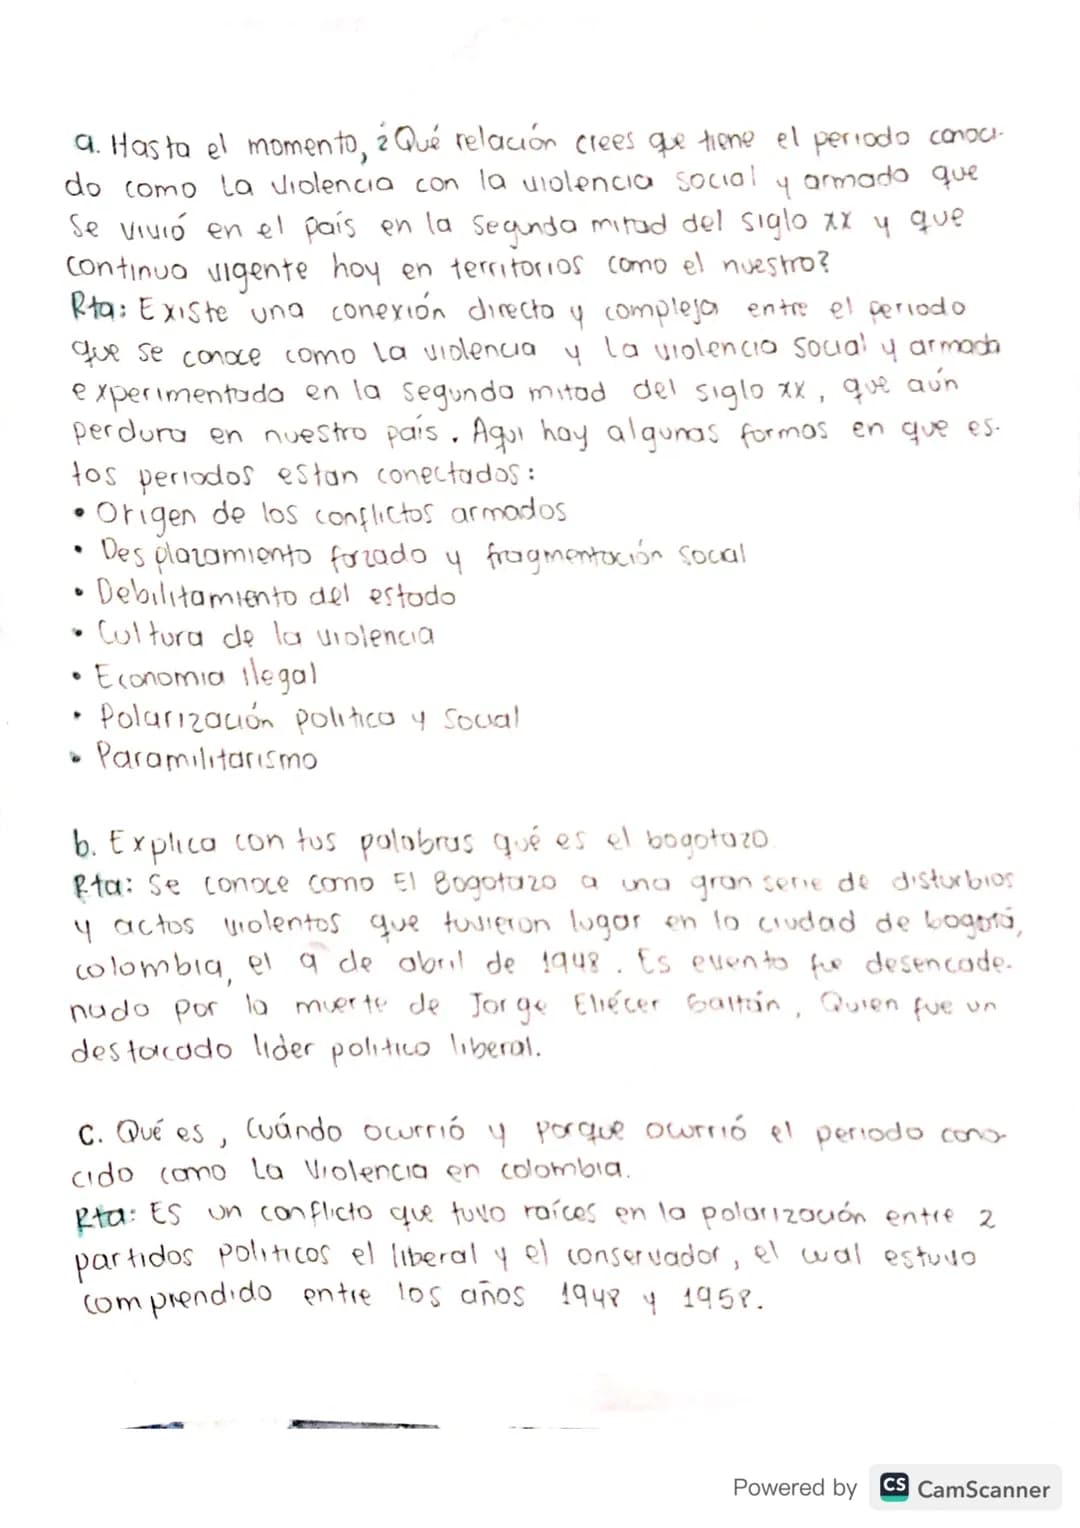 a. Hasta el momento, ¿Qué relación crees que tiene el periodo conoci-
do como La Violencia con la violencia social y armada que
se vivió en el país en la segunda mitad del siglo xx y que
continua vigente hoy en territorios como el nuestro?
Rta: Existe una conexión directa y compleja entre el periodo
que se conoce como la violencia y la violencia social y armada
experimentada en la segunda mitad del siglo xx, que aún
perdura en nuestro pais. Aqui hay algunas formas en que es-
tos periodos estan conectados:
• Origen de los conflictos armados
• Desplazamiento forzado y fragmentación social
• Debilitamiento del estado
• Cultura de la violencia
• Economia ilegal
• Polarización politica y social
• Paramilitarismo
b. Explica con tus palabras qué es el bogotazo
Rta: Se conoce como El Bogotazo a una gran serie de disturbios
y actos violentos que tuvieron lugar en la ciudad de bogotá,
colombia, el 9 de abril de 1948. Es evento fue desencade-
nado por la muerte de Jorge Eliécer Gaitán, Quien fue un
destacado lider politico liberal.
C. Qué es, Cuándo ocurrió y porque ocurrió el periodo cono-
cido como La Violencia en colombia.
Rta: ES un conflicto que tuvo raíces en la polarización entre 2
partidos politicos el liberal y el conservador, el cual estuvo
comprendido entre los años 1948 y 1958.
Powered by CS CamScanner